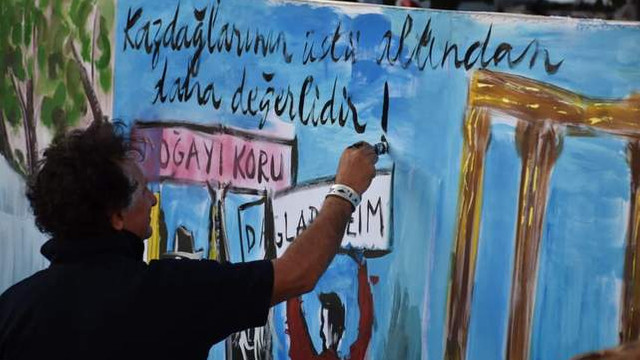 Kazdağlarının üstü altından
daha değerlidir!
DOĞAYI KORU
DAĞLAR EİM